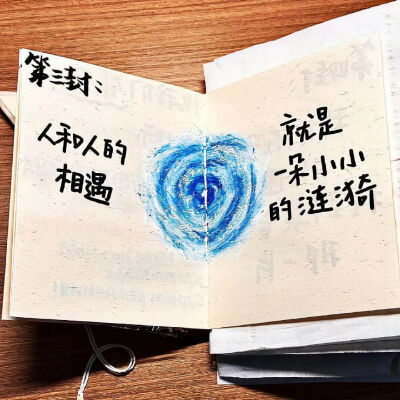 第三封:
人和人的
相遇
就是
一朵小小
的涟漪